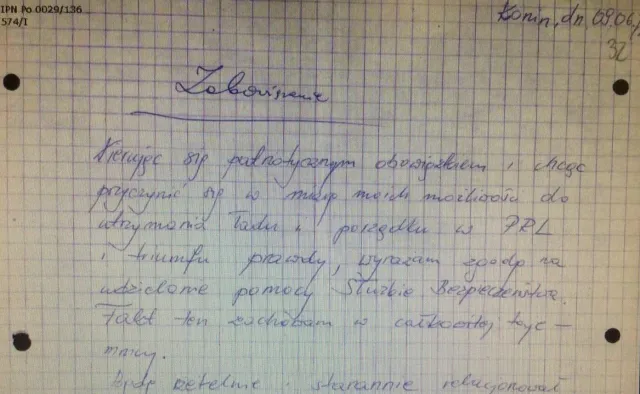 IPN Po 0029/136
574/I
Konin, dn. 09.06.
32
Zobowiązanie
Kierując się patriotycznym obowiązkiem i chcąc
przyczynić się w miarę moich możliwości do
utrzymania ładu i porządku w PRL
i triumfu prawdy, wyrażam zgodę na
udzielanie pomocy Służbie Bezpieczeństwa.
Fakt ten zachowam w całkowitej tajem-
nicy.
Będę rzetelnie i starannie